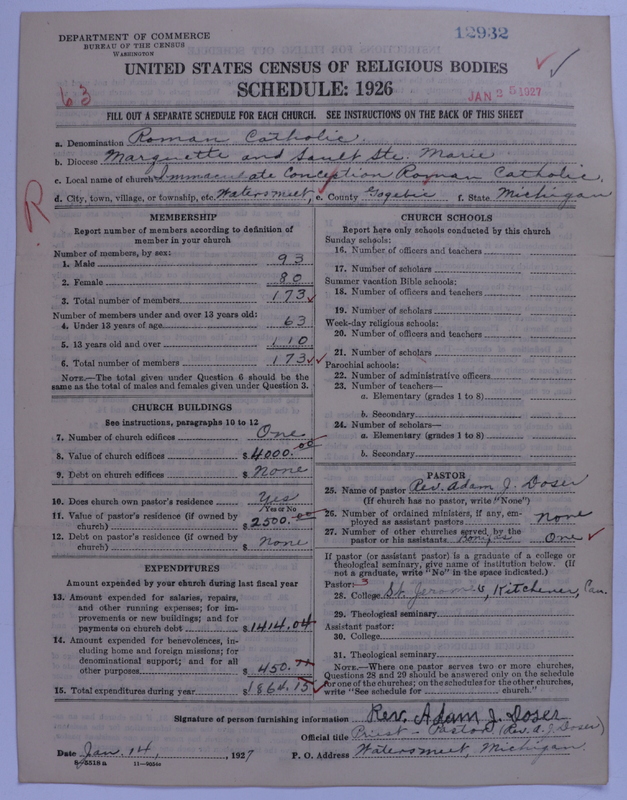 DEPARTMENT OF COMMERCE
BUREAU OF THE CENSUS
WASHINGTON
12932
UNITED STATES CENSUS OF RELIGIOUS BODIES
SCHEDULE: 1926
63
JAN 25 1927
FILL OUT A SEPARATE SCHEDULE FOR EACH CHURCH. SEE INSTRUCTIONS ON THE BACK OF THIS SHEET
a. Denomination Roman Catholic.
b. Diocese Marquette and Sault Ste. Marie
c. Local name of church Immaculate Conception Roman Catholic.
d. City, town, village, or township, etc. Watersmeet, e. County Gogebic f. State Michigan
R
MEMBERSHIP
Report number of members according to definition of
member in your church
Number of members, by sex:
1. Male 93
2. Female 80
3. Total number of members 173
Number of members under and over 13 years old:
4. Under 13 years of age 63
5. 13 years old and over 110
6. Total number of members 173
NOTE.—The total given under Question 6 should be the
same as the total of males and females given under Question 3.
CHURCH BUILDINGS
See instructions, paragraphs 10 to 12
7. Number of church edifices One
8. Value of church edifices $4000.00
9. Debt on church edifices $None
10. Does church own pastor's residence Yes
(Yes or No)
11. Value of pastor's residence (if owned by
church) $2500.00
12. Debt on pastor's residence (if owned by
church) $None
EXPENDITURES
Amount expended by your church during last fiscal year
13. Amount expended for salaries, repairs,
and other running expenses; for im-
provements or new buildings; and for
payments on church debt $1414.04
14. Amount expended for benevolences, in-
cluding home and foreign missions; for
denominational support; and for all
other purposes $450.11
15. Total expenditures during year $1864.15
CHURCH SCHOOLS
Report here only schools conducted by this church
Sunday schools:
16. Number of officers and teachers
17. Number of scholars
Summer vacation Bible schools:
18. Number of officers and teachers
19. Number of scholars
Week-day religious schools:
20. Number of officers and teachers
21. Number of scholars
Parochial schools:
22. Number of administrative officers
23. Number of teachers—
a. Elementary (grades 1 to 8)
b. Secondary
24. Number of scholars—
a. Elementary (grades 1 to 8)
b. Secondary
PASTOR
25. Name of pastor Rev. Adam J. Doser
(If church has no pastor, write "None")
26. Number of ordained ministers, if any, em-
ployed as assistant pastors none
27. Number of other churches served by the
pastor or his assistants Bonifas One
If pastor (or assistant pastor) is a graduate of a college or
theological seminary, give name of institution below. (If
not a graduate, write "No" in the space indicated.)
Pastor: 3
28. College St. Jerome's, Kitchener, Can.
29. Theological seminary
Assistant pastor:
30. College
31. Theological seminary
NOTE.—Where one pastor serves two or more churches,
Questions 28 and 29 should be answered only on the schedule
for one of the churches; on the schedules for the other churches,
write "See schedule for church."
Signature of person furnishing information Rev. Adam J. Doser
Official title Priest - Pastor (Rev. A. J. Doser)
Date Jan. 14, 1927 P. O. Address Watersmeet, Michigan.
8-5518a 11-9034